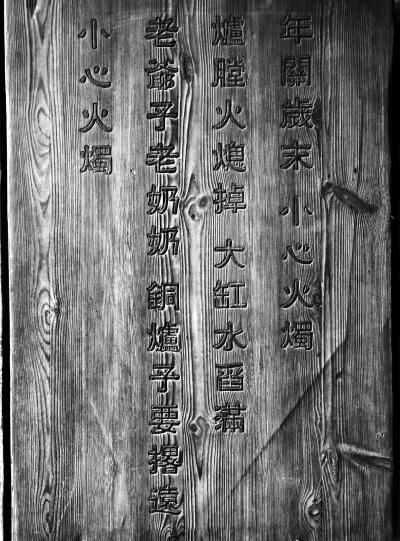 年關歲末 小心火燭
爐膛火熄掉 大缸水舀滿
老爺子老奶奶 銅爐子要撂遠
小心火燭